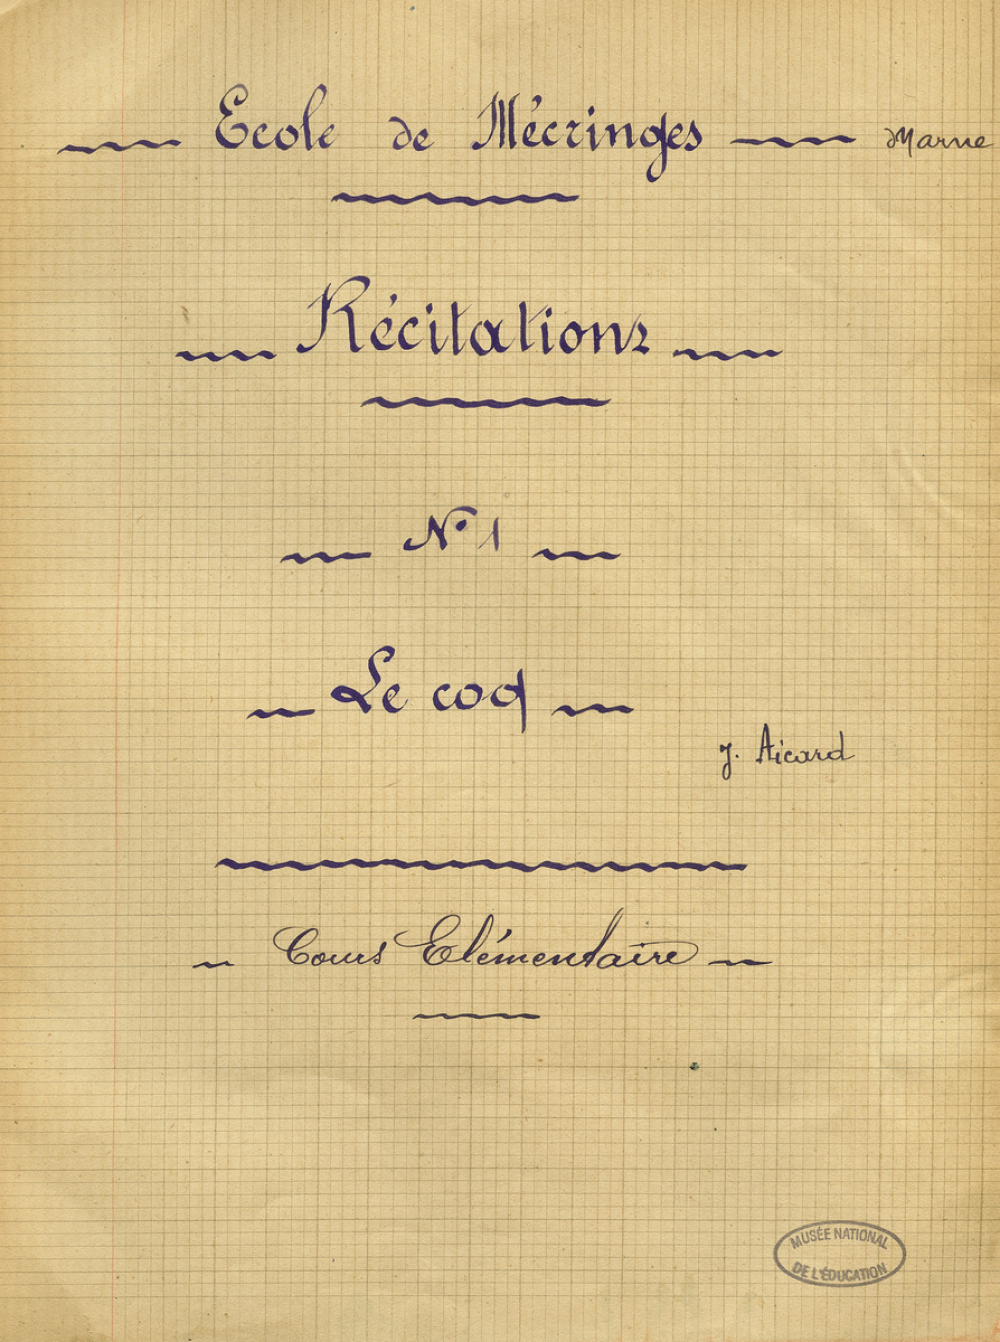 Ecole de Mécringes Marne
Récitations
N° 1
Le coq
J. Aicard
Cours Elémentaire
MUSÉE NATIONAL
DE L'ÉDUCATION